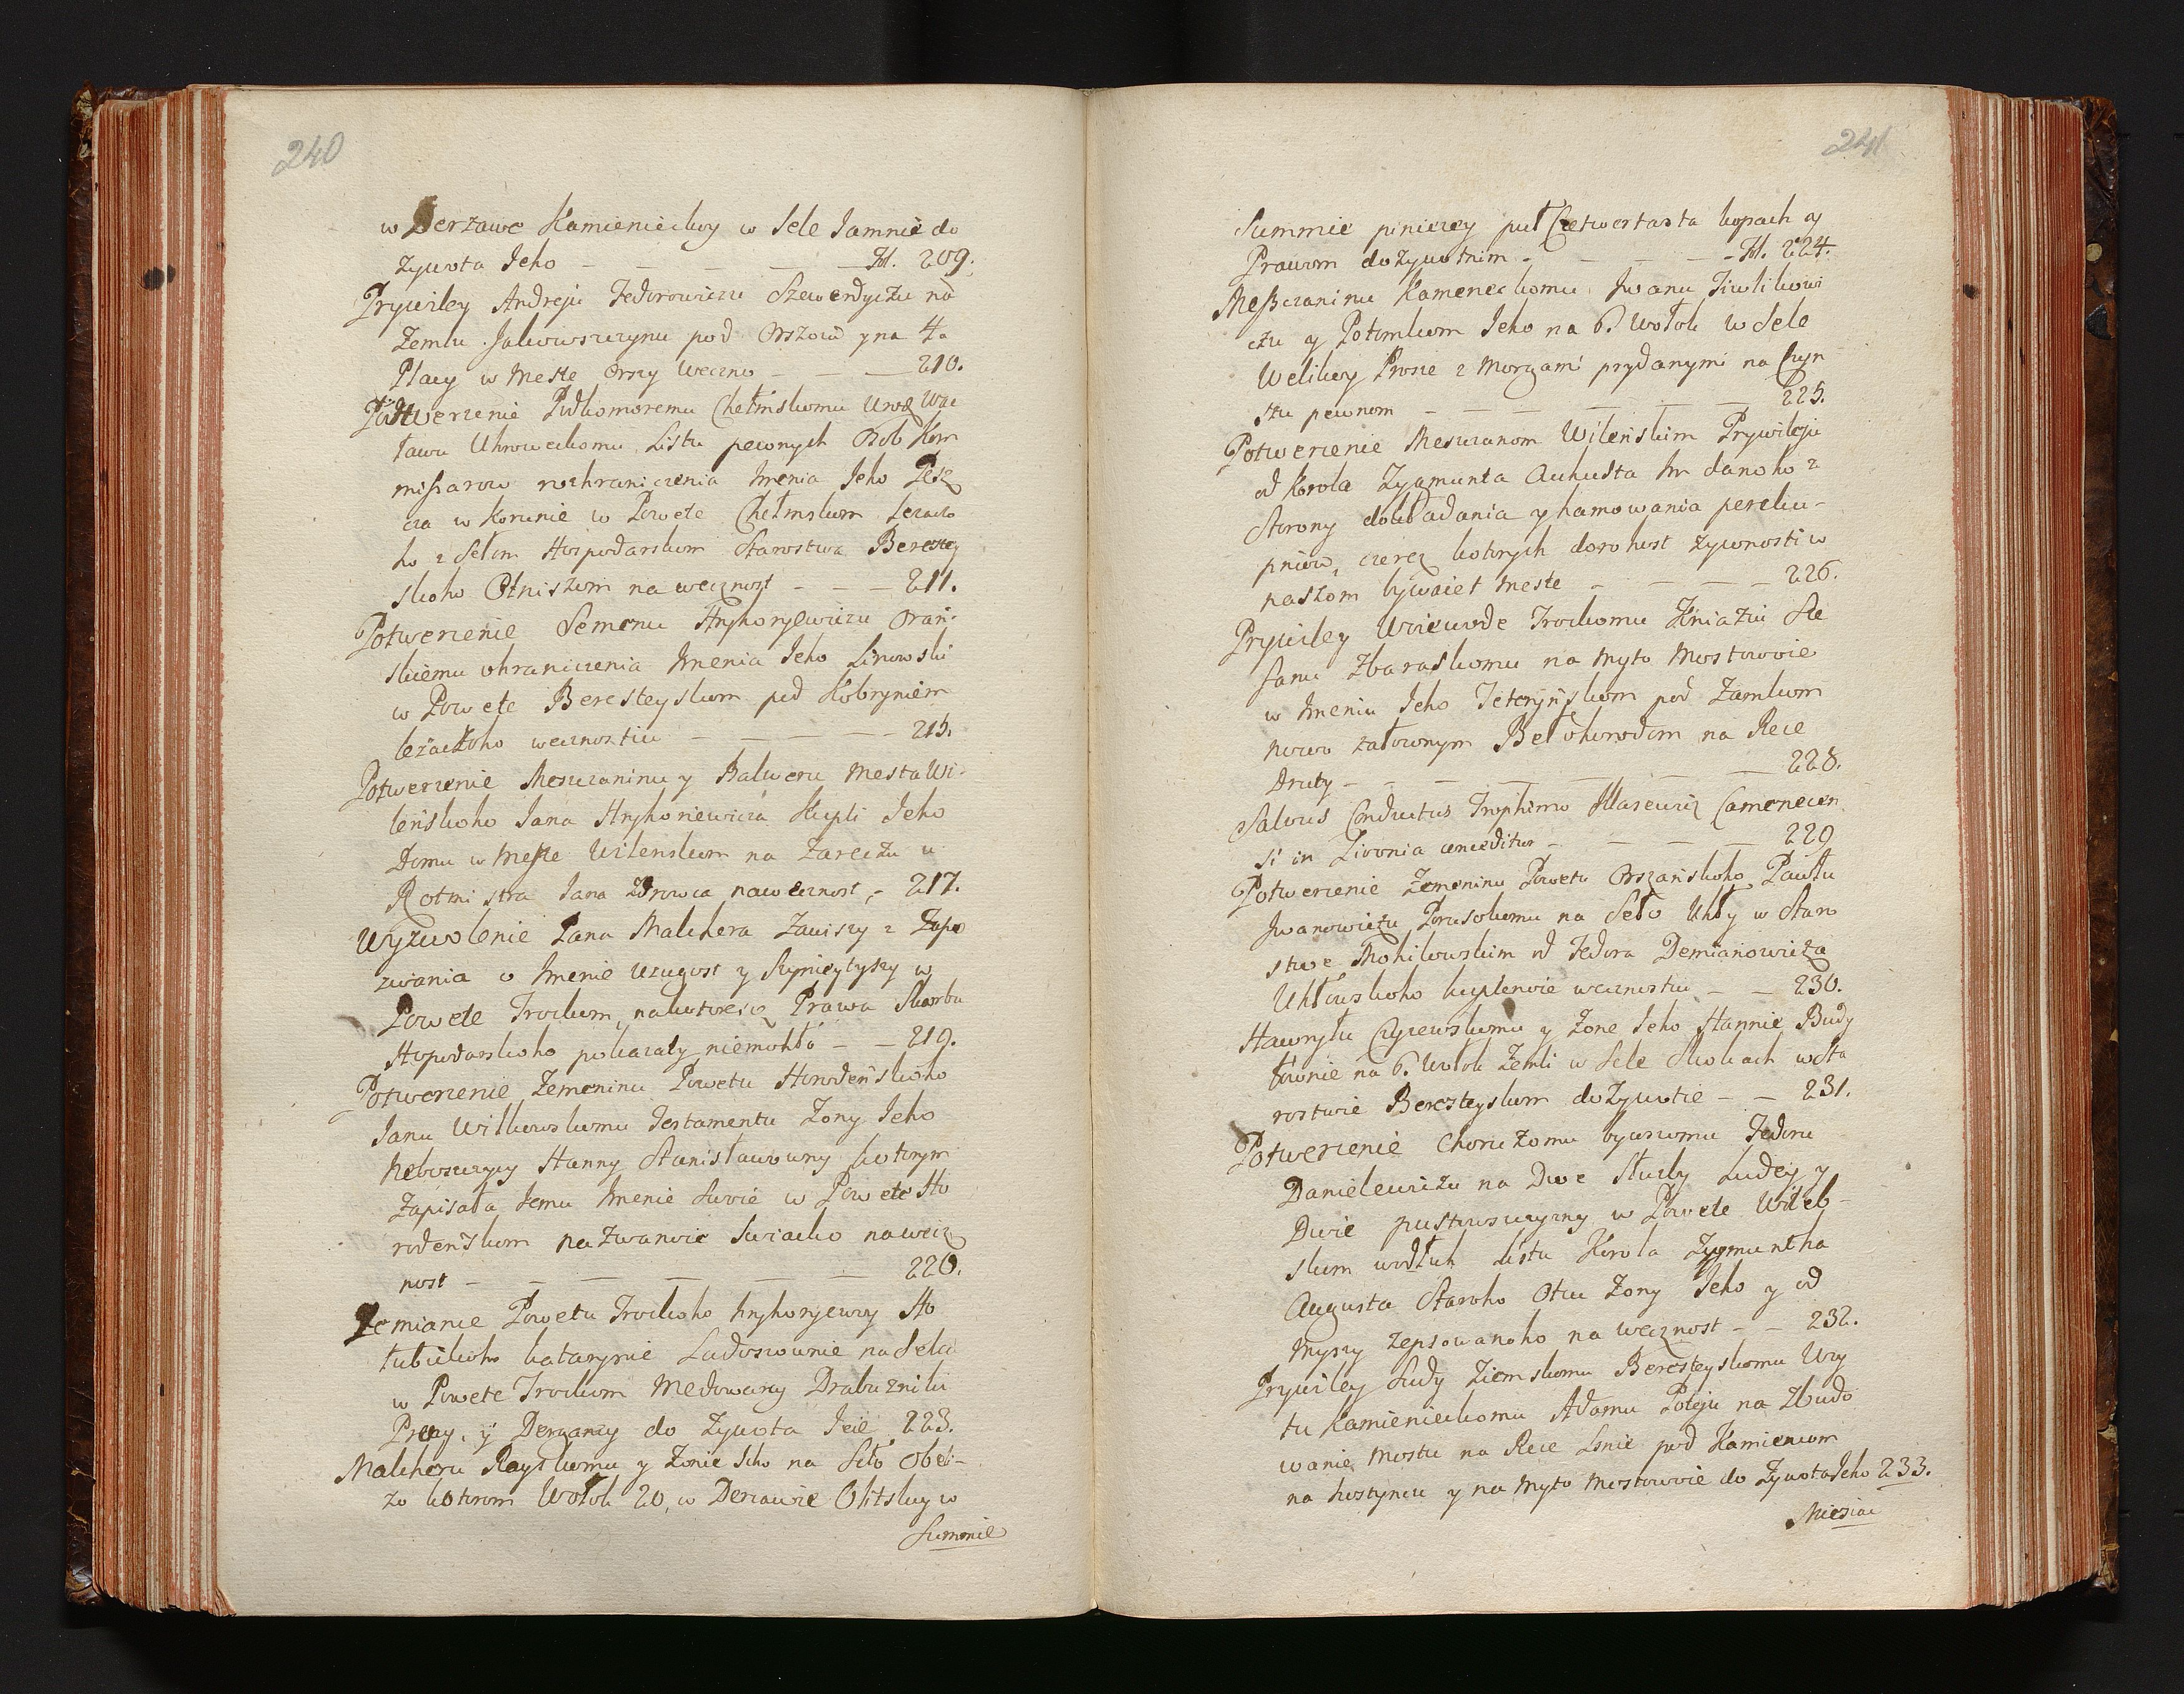 240
w Derzawe Kamienieckoy w Sele Jamnie do
żywota Jeho — — — — — Fol. 209.
Prywiley Andreju Fedorowiczu Szewerdyczu na
Zemlu Jakowszczynu pod Orszoiu y na 4.
Placy w Meste Orszy weczno — — — 210.
Potwerzenie Podkomoremu Chełmskomu Urozę Wac
ławu Uhroweckomu Listu pewnych Osob Kom
missarow rozhraniczenia Imenia Jeho Pesz
cza w Korunie w Powete Chełmskom leżaczo
ho z Sełom Hospodarskom Starostwa Beresty
skoho Otniszom na wecznost — — — 211.
Potwerzenie Semenu Hryhoryewiczu Orań-
skiemu ohraniczenia Imenia Jeho Linowski
w Powete Beresteyskom pod Kobryniem
leżaczoho wecznostiu — — — — — 215.
Potwerzenie Mesczaninu y Balweru Mesta Wi-
leńskoho Jana Hryhoriewicza Kupli Jeho
Domu w Meste Wilenskom na Zareczu u
Rotmistra Jana Zdrowca na wecznost, - 217.
Wyzwolenie Pana Malchera Zawiszy z Zapo
zwania o Imenie Uzugost y Szyniełyszy w
Powete Trockom, na kotoreią Prawa Skarbu
Hospodarskoho pokazaty niemohło — — 219.
Potwerzenie Zemeninu Powetu Horodeńskoho
Janu Witkowskomu Testamentu Zony Jeho
Neboszczycy Hanny Stanisławowny kotorym
Zapisała Jemu Imenie Swoie w Powete Ho
rodeńskom nazwanoie Swiacko na wecz
nost — — — — — — 220.
Zemianie Powetu Trockoho Hryhoryewoy Ho
łubickoho Kataryne Ladosiownie na Sela
w Powete Trockom Medowary Drabuzniki
y Dergancy do Zywota Jeie 223.
Malcheru Rayskomu y Zonie Jeho na Seło Obei-
zo kotorom Wołok 20, w Derzawie Olitskoy w
Summie
241
Summie pinieżey puł Czetwertasta kopach y
Prawom dożywotnim — — — — Fol. 224.
Meszczaninu Kameneckomu Iwanu Tiwlikowi
czu y Potomkom Jeho na 6. Wołok w Sele
Welikoy Prosie z Morgami prydanymi na Czyn
szu pewnom — — — — — — 225.
Potwerzenie Mesczanom Wileńskim Prywileju
od Korola Zygmunta Auhusta Im danoho z
Storony dokładania y hamowania pereku-
pniow, czerez kotorych dorohost żywnosti w
naszom bywaiet Meste — — — — 226.
Prywiley Woiewode Trockomu Kniaziu Ste
fanu Zbaraskomu na Myto Mostowoie
w Imeniu Jeho Teteryńskom pod Zamkom
nowo założonym Bełohorodom na Rece
Druty — — — — — — — 228.
Salvus Conductus Trophimo Klarewicz Camenecen
si in Livonia conceditur — — — — — 229
Potwerzenie Zemeninu Powetu Orszańskoho Pawłu
Iwanowiczu Prusokomu na Seło Uhły w Staro
stwe Mohilowskim od Fedora Demianowicza
Uhłowskoho kuplenoie wecznostiu — — 230.
Hawryłu Czyzewskomu y Zone Jeho Hannie Budy
łownie na 6. Wołok Zemli w Sele Skokach w Sta
rostwie Beresteyskom do Zywotie — — 231.
Potwerzenie Choruzomu bywszomu Fedoru
Danielewiczu na Dwe Służby Ludey y
Dwie pustowszczyzny w Powete Witeb-
skom wodłuh Listu Korola Zygmuntha
Augusta Staroho Otcu Zony Jeho y od
Myszy zepsowanoho na wecznost — — 232.
Prywiley Sudy Ziemskomu Beresteyskomu Woy
tu Kamienieckomu Adamu Poteju na Zbudo
wanie Mostu na Rece Lsnie pod Kamieniom
na hostyncu y na Myto Mostowoie do Zywota Jeho 233.
Miesiac